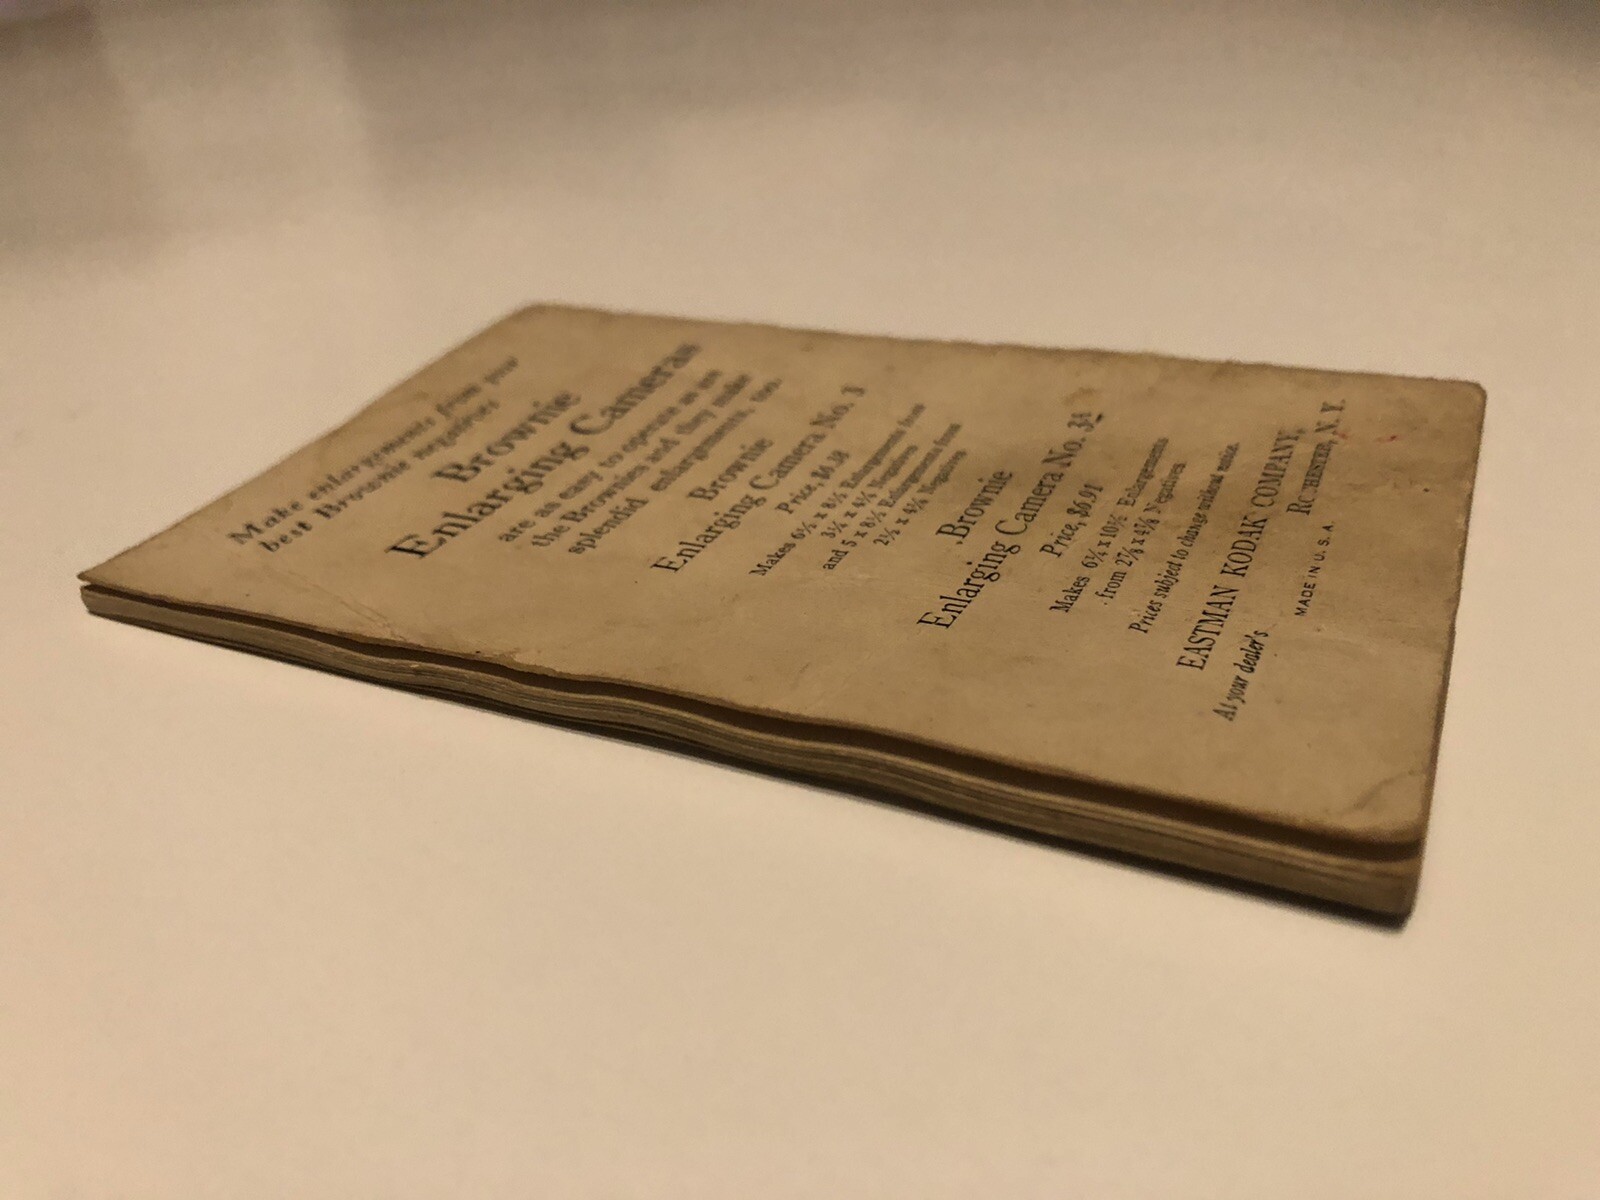 Make enlargements from your
best Brownie negatives
Brownie
Enlarging Cameras
are as easy to operate as are
the Brownies and they make
splendid enlargements, too.
Brownie
Enlarging Camera No. 3
Price, $6.38
Makes 6½ x 8½ Enlargements from
3¼ x 4¼ Negatives
and 5 x 8½ Enlargements from
2½ x 4¼ Negatives
Brownie
Enlarging Camera No. 3A
Price, $6.91
Makes 6½ x 10½ Enlargements
from 2⅞ x 4⅞ Negatives
Prices subject to change without notice.
EASTMAN KODAK COMPANY,
At your dealer's
ROCHESTER, N. Y.
MADE IN U. S. A.